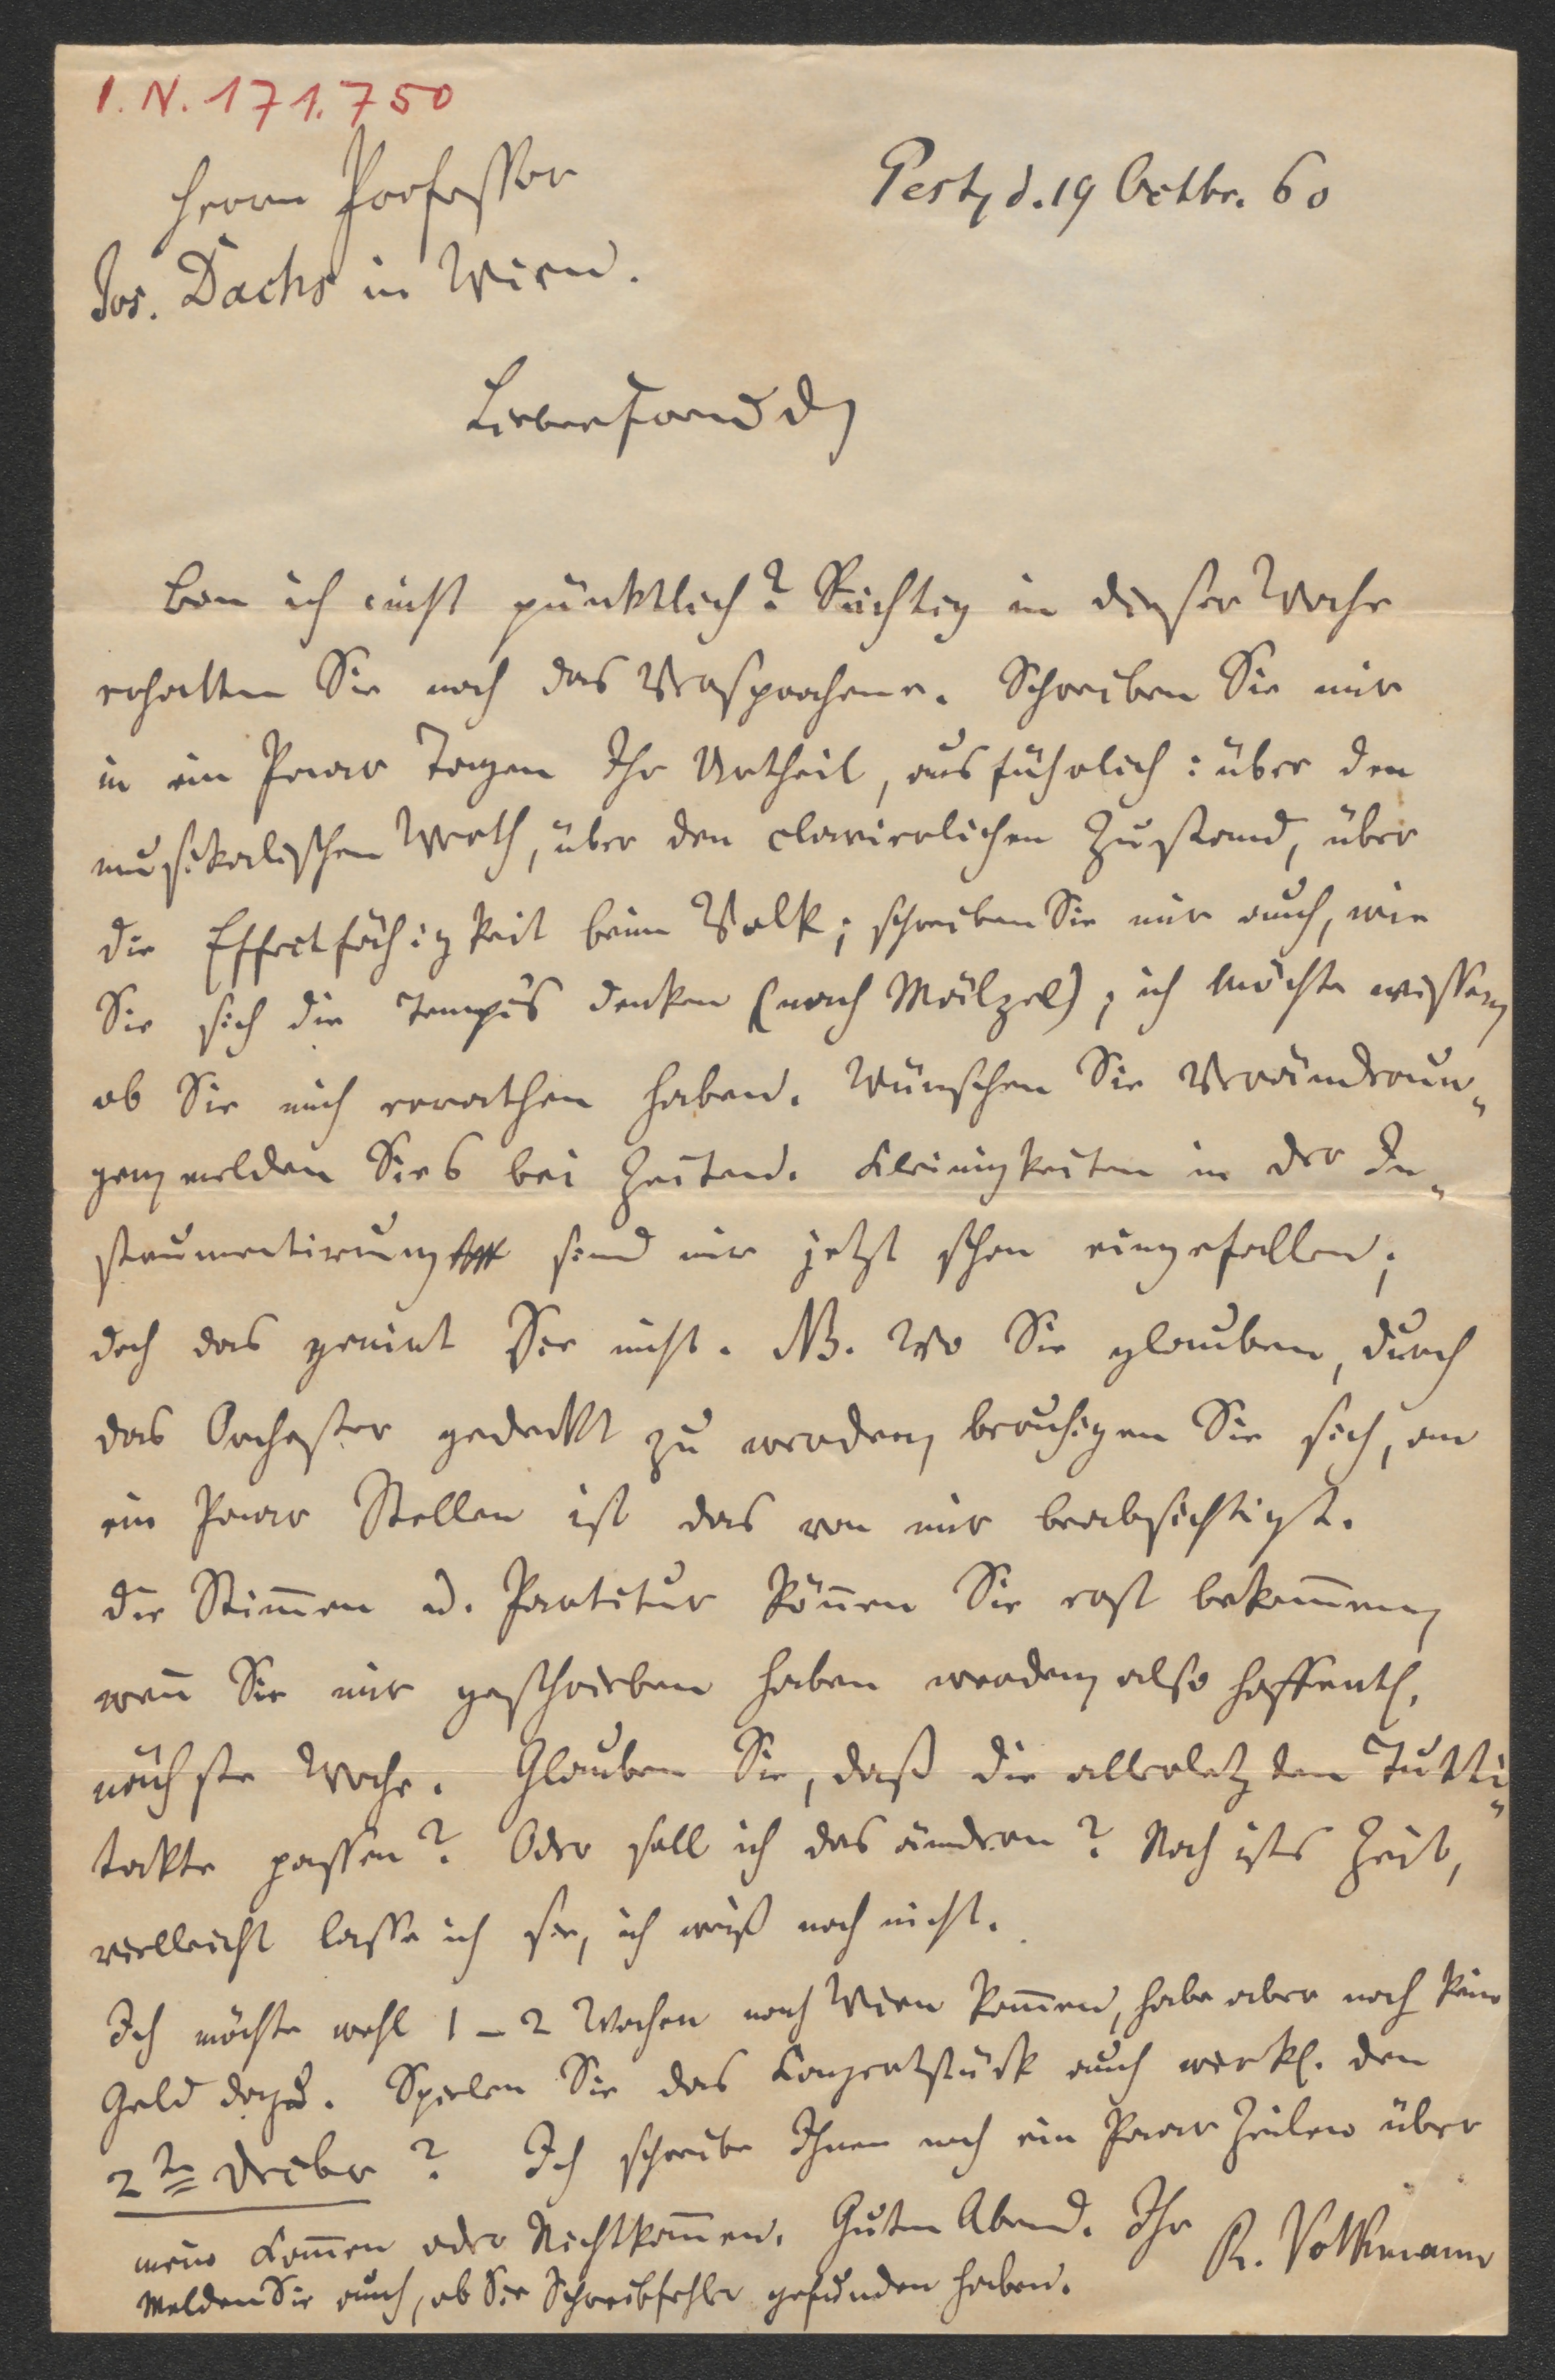 I. N. 171.750
Herrn Professor
Pest, d. 19 Octbr. 60
Jos. Dachs in Wien.
Lieber Freund,
Bin ich nicht pünktlich? Richtig in dieser Woche
erhalten Sie noch das Versprochene. Schreiben Sie mir
in ein Paar Tagen Ihr Urtheil, ausführlich: über den
musikalischen Werth, über den clavierlichen Zustand, über
die Effectfähigkeit beim Volk; schreiben Sie mir auch, wie
Sie sich die Tempi's denken (nach Mälzel), ich möchte wissen,
ob Sie mich errathen haben. Wünschen Sie Veränderun-
gen, melden Sie's bei Zeiten. Kleinigkeiten in der In-
strumentirung sind mir jetzt schon eingefallen;
doch das genirt Sie nicht. NB. Wo Sie glauben, durch
das Orchester gedeckt zu werden, beruhigen Sie sich, an
ein Paar Stellen ist das von mir beabsichtigt.
Die Stim̅en u. Partitur kön̅en Sie erst bekom̅en,
wen̅ Sie mir geschrieben haben werden, also hoffentl.
nächste Woche. Glauben Sie, daß die allerletzten Tutti-
takte passen? Oder soll ich das ändern? Noch ists Zeit,
vielleicht lasse ich sie, ich weiß noch nicht.
Ich möchte wohl 1 – 2 Wochen nach Wien kom̅en, habe aber noch kein
Geld dazu. Spielen Sie das Conzertstück auch wirkl. den
2ten Decbr? Ich schreibe Ihnen noch ein Paar Zeilen über
mein Kom̅en oder Nichtkom̅en. Guten Abend. Ihr
R. Volkmann
Melden Sie auch, ob Sie Schreibfehler gefunden haben.